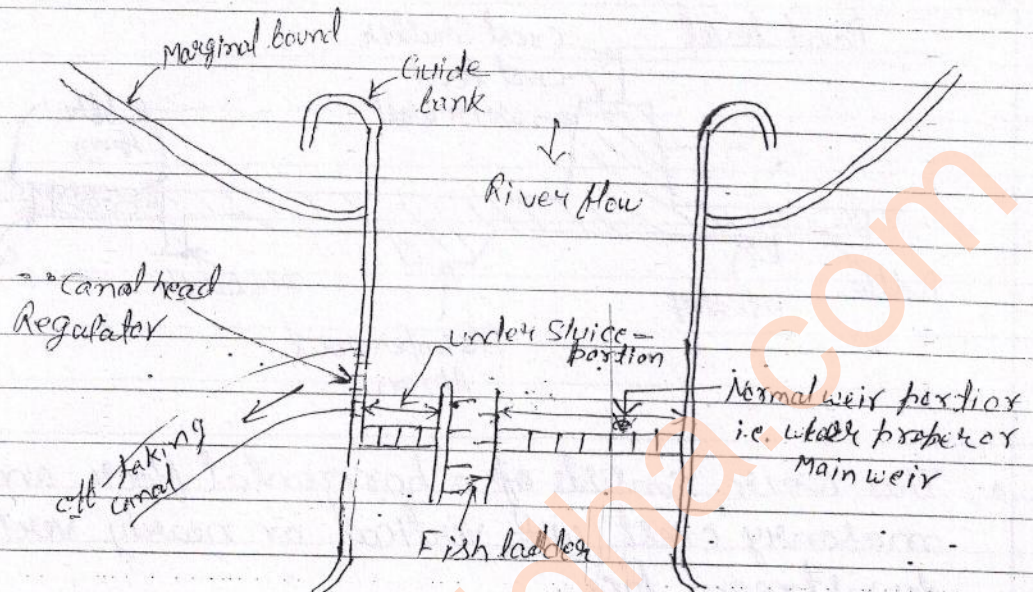 Marginal bound
Guide
bank
River flow
Canal head
Regulator
under sluice
portion
Normal weir portion
i.e. weir proper or
Main weir
off taking
canal
Fish ladder